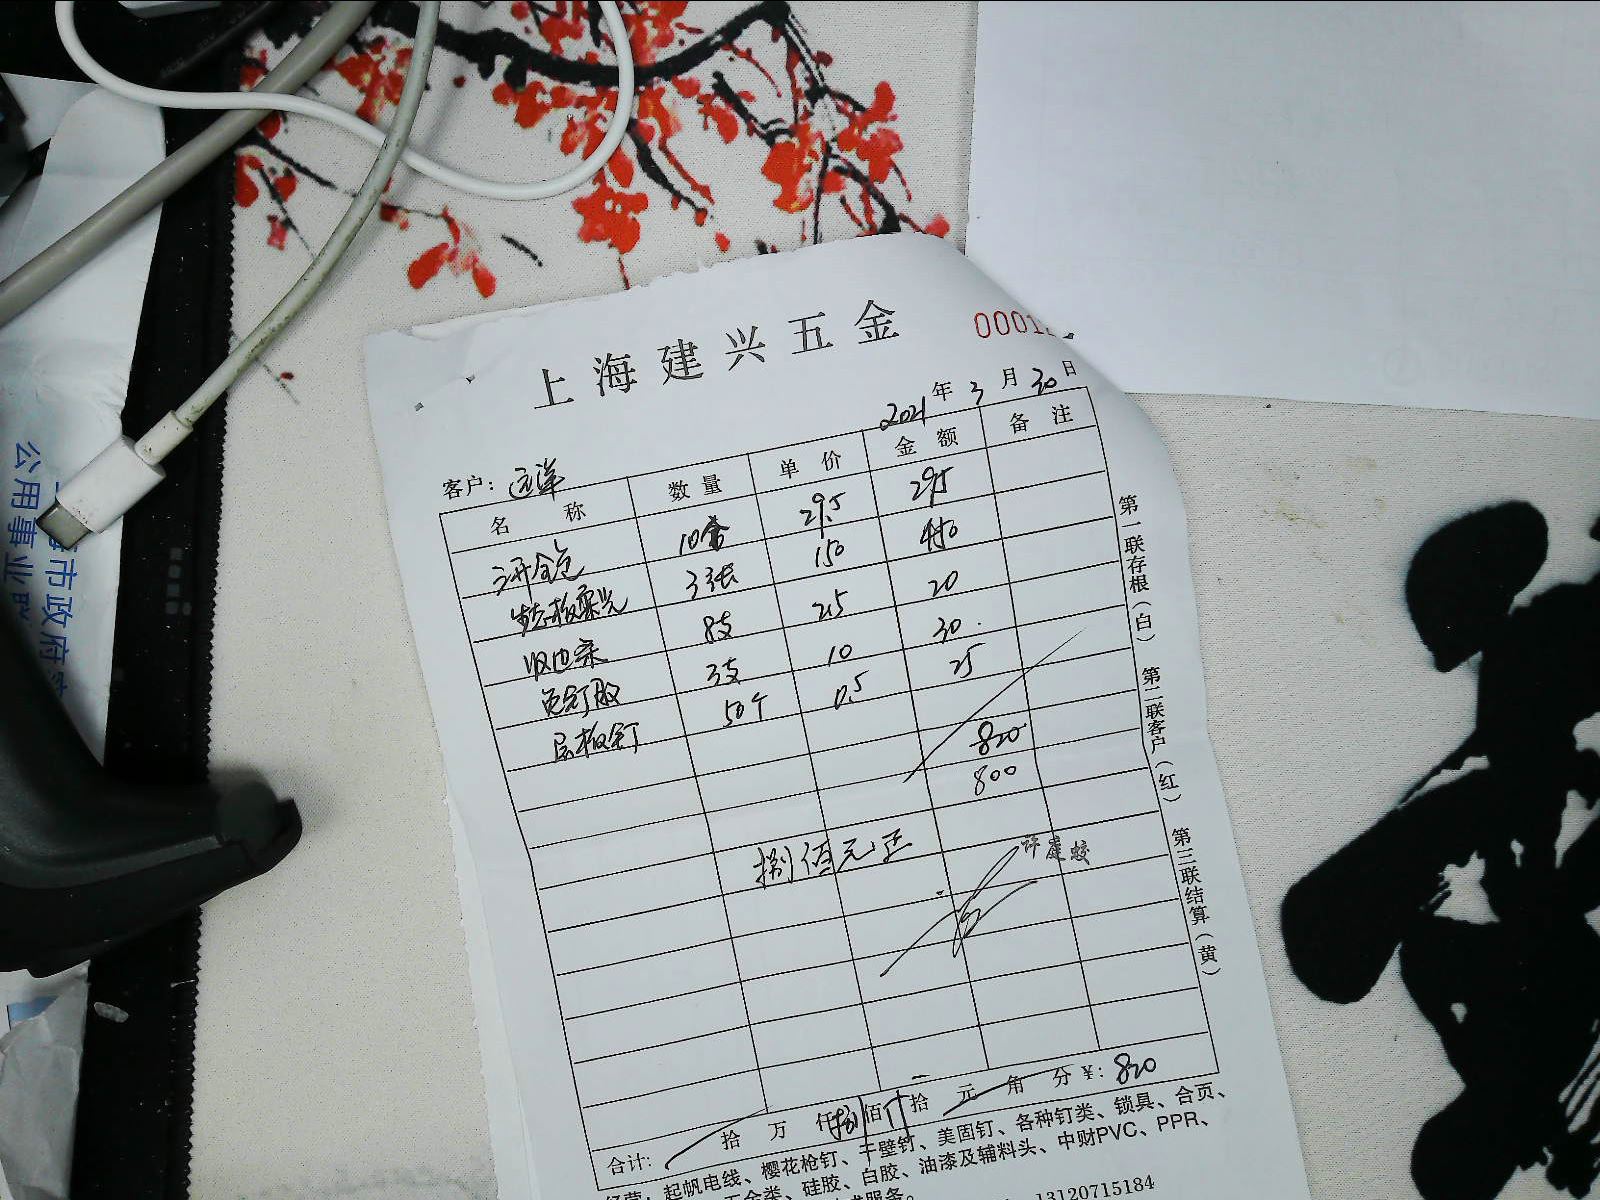 上海建兴五金
0001
2021年3月30日
客户：远洋
名 称 数量 单价 金额 备注
三开全包 10套 29.5 295
生态板 3张 150 450
8支 2.5 20
免钉胶 3支 10 30
层板钉 50个 0.5 25
820
800
捌佰元正
许庭蛟
第一联存根（白） 第二联客户（红） 第三联结算（黄）
合计： 拾 万 仟捌佰 拾 元 角 分 ¥：820
经营：起帆电线、樱花枪钉、干壁钉、美固钉、各种钉类、锁具、合页、
五金类、硅胶、白胶、油漆及辅料头、中财PVC、PPR、
服务。
13120715184
市政府
公用事业